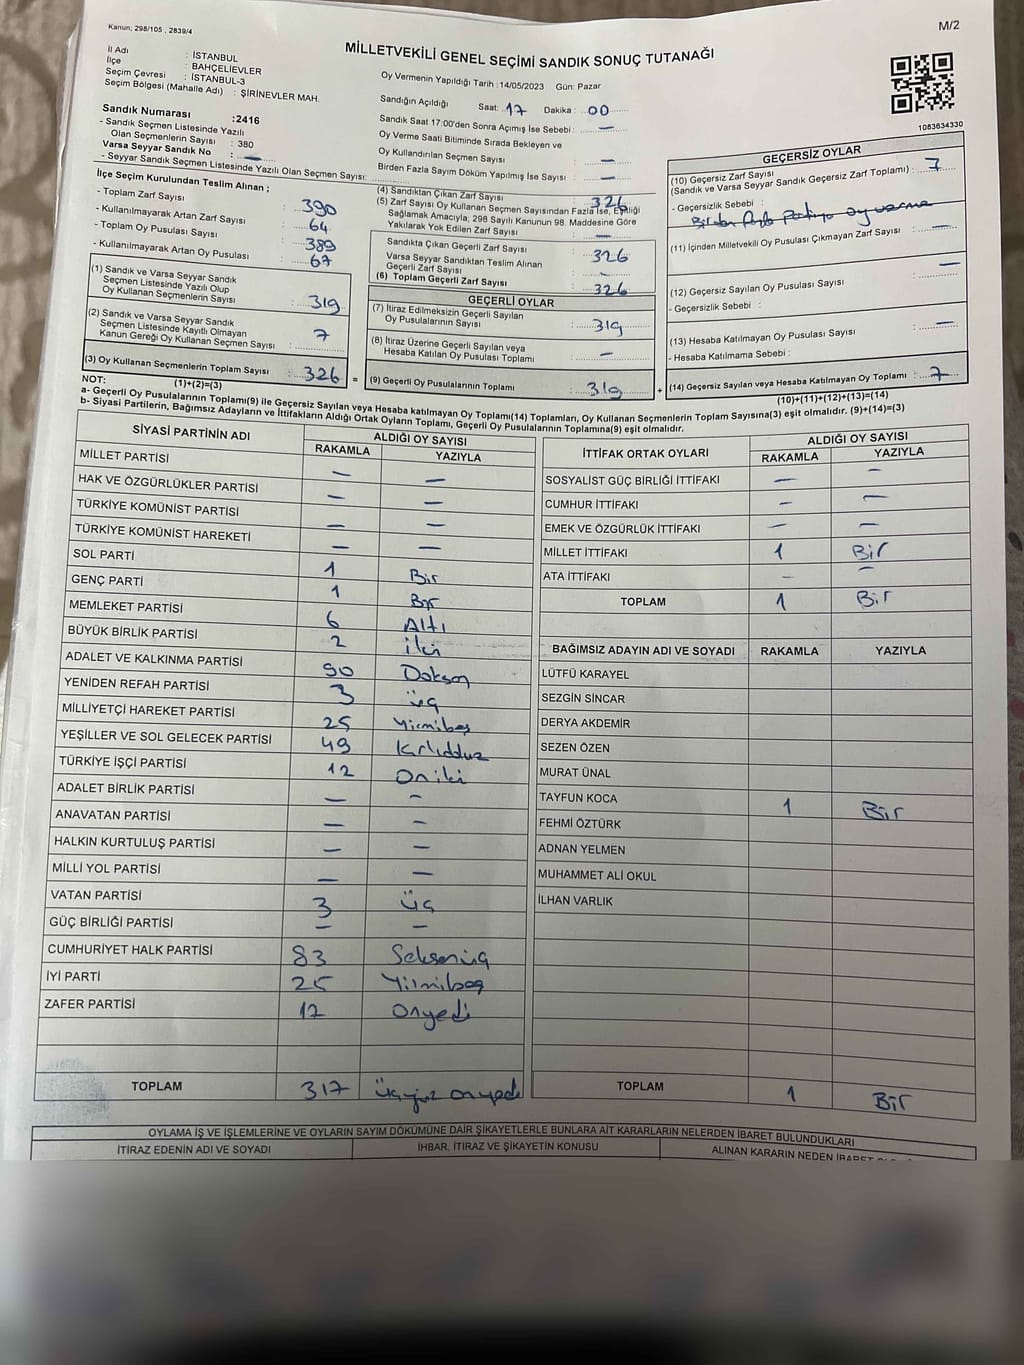 Kanun; 298/105 , 2839/4
M/2
MİLLETVEKİLİ GENEL SEÇİMİ SANDIK SONUÇ TUTANAĞI
İl Adı : İSTANBUL
İlçe : BAHÇELİEVLER
Seçim Çevresi : İSTANBUL-3
Seçim Bölgesi (Mahalle Adı) : ŞİRİNEVLER MAH.
Sandık Numarası :2416
- Sandık Seçmen Listesinde Yazılı
Olan Seçmenlerin Sayısı : 380
Varsa Seyyar Sandık No : —
- Seyyar Sandık Seçmen Listesinde Yazılı Olan Seçmen Sayısı:
İlçe Seçim Kurulundan Teslim Alınan ;
- Toplam Zarf Sayısı : 390
- Kullanılmayarak Artan Zarf Sayısı : 64
- Toplam Oy Pusulası Sayısı : 389
- Kullanılmayarak Artan Oy Pusulası : 67
(1) Sandık ve Varsa Seyyar Sandık
Seçmen Listesinde Yazılı Olup
Oy Kullanan Seçmenlerin Sayısı : 319
(2) Sandık ve Varsa Seyyar Sandık
Seçmen Listesinde Kayıtlı Olmayan
Kanun Gereği Oy Kullanan Seçmen Sayısı : 7
(3) Oy Kullanan Seçmenlerin Toplam Sayısı : 326
(1)+(2)=(3)
Oy Vermenin Yapıldığı Tarih :14/05/2023 Gün: Pazar
Sandığın Açıldığı Saat: 17 Dakika : 00
Sandık Saat 17:00'den Sonra Açımış İse Sebebi : —
Oy Verme Saati Bitiminde Sırada Bekleyen ve
Oy Kullandırılan Seçmen Sayısı : —
Birden Fazla Sayım Döküm Yapılmış İse Sayısı : —
(4) Sandıktan Çıkan Zarf Sayısı : 326
(5) Zarf Sayısı Oy Kullanan Seçmen Sayısından Fazla İse, Eşitliği
Sağlamak Amacıyla; 298 Sayılı Kanunun 98. Maddesine Göre
Yakılarak Yok Edilen Zarf Sayısı : —
Sandıkta Çıkan Geçerli Zarf Sayısı : 326
Varsa Seyyar Sandıktan Teslim Alınan
Geçerli Zarf Sayısı : -
(6) Toplam Geçerli Zarf Sayısı : 326
GEÇERLİ OYLAR
(7) İtiraz Edilmeksizin Geçerli Sayılan
Oy Pusulalarının Sayısı : 319
(8) İtiraz Üzerine Geçerli Sayılan veya
Hesaba Katılan Oy Pusulası Toplamı : —
= (9) Geçerli Oy Pusulalarının Toplamı : 319 +
1083634330
GEÇERSİZ OYLAR
(10) Geçersiz Zarf Sayısı
(Sandık ve Varsa Seyyar Sandık Geçersiz Zarf Toplamı) : 7
- Geçersizlik Sebebi : Birden fazla partiye oy verme
(11) İçinden Milletvekili Oy Pusulası Çıkmayan Zarf Sayısı : —
(12) Geçersiz Sayılan Oy Pusulası Sayısı : —
- Geçersizlik Sebebi :
(13) Hesaba Katılmayan Oy Pusulası Sayısı : —
- Hesaba Katılmama Sebebi :
(14) Geçersiz Sayılan veya Hesaba Katılmayan Oy Toplamı : 7
(10)+(11)+(12)+(13)=(14)
NOT:
a- Geçerli Oy Pusulalarının Toplamı(9) ile Geçersiz Sayılan veya Hesaba katılmayan Oy Toplamı(14) Toplamları, Oy Kullanan Seçmenlerin Toplam Sayısına(3) eşit olmalıdır. (9)+(14)=(3)
b- Siyasi Partilerin, Bağımsız Adayların ve İttifakların Aldığı Ortak Oyların Toplamı, Geçerli Oy Pusulalarının Toplamına(9) eşit olmalıdır.
SİYASİ PARTİNİN ADI ALDIĞI OY SAYISI
RAKAMLA YAZIYLA
MİLLET PARTİSİ — —
HAK VE ÖZGÜRLÜKLER PARTİSİ — —
TÜRKİYE KOMÜNİST PARTİSİ — —
TÜRKİYE KOMÜNİST HAREKETİ — —
SOL PARTİ 1 Bir
GENÇ PARTİ 1 Bir
MEMLEKET PARTİSİ 6 Altı
BÜYÜK BİRLİK PARTİSİ 2 iki
ADALET VE KALKINMA PARTİSİ 90 Doksan
YENİDEN REFAH PARTİSİ 3 üç
MİLLİYETÇİ HAREKET PARTİSİ 25 Yirmibeş
YEŞİLLER VE SOL GELECEK PARTİSİ 49 Kırkdokuz
TÜRKİYE İŞÇİ PARTİSİ 12 Oniki
ADALET BİRLİK PARTİSİ — —
ANAVATAN PARTİSİ — —
HALKIN KURTULUŞ PARTİSİ — —
MİLLİ YOL PARTİSİ — —
VATAN PARTİSİ 3 üç
GÜÇ BİRLİĞİ PARTİSİ — —
CUMHURİYET HALK PARTİSİ 83 Seksenüç
İYİ PARTİ 25 Yirmibeş
ZAFER PARTİSİ 17 Onyedi
TOPLAM 317 üçyüz onyedi
İTTİFAK ORTAK OYLARI ALDIĞI OY SAYISI
RAKAMLA YAZIYLA
SOSYALİST GÜÇ BİRLİĞİ İTTİFAKI — —
CUMHUR İTTİFAKI — —
EMEK VE ÖZGÜRLÜK İTTİFAKI — —
MİLLET İTTİFAKI 1 Bir
ATA İTTİFAKI — —
TOPLAM 1 Bir
BAĞIMSIZ ADAYIN ADI VE SOYADI RAKAMLA YAZIYLA
LÜTFÜ KARAYEL
SEZGİN SİNCAR
DERYA AKDEMİR
SEZEN ÖZEN
MURAT ÜNAL
TAYFUN KOCA 1 Bir
FEHMİ ÖZTÜRK
ADNAN YELMEN
MUHAMMET ALİ OKUL
İLHAN VARLIK
TOPLAM 1 Bir
OYLAMA İŞ VE İŞLEMLERİNE VE OYLARIN SAYIM DÖKÜMÜNE DAİR ŞİKAYETLERLE BUNLARA AİT KARARLARIN NELERDEN İBARET BULUNDUKLARI
İTİRAZ EDENİN ADI VE SOYADI İHBAR, İTİRAZ VE ŞİKAYETİN KONUSU ALINAN KARARIN NEDEN İBARET